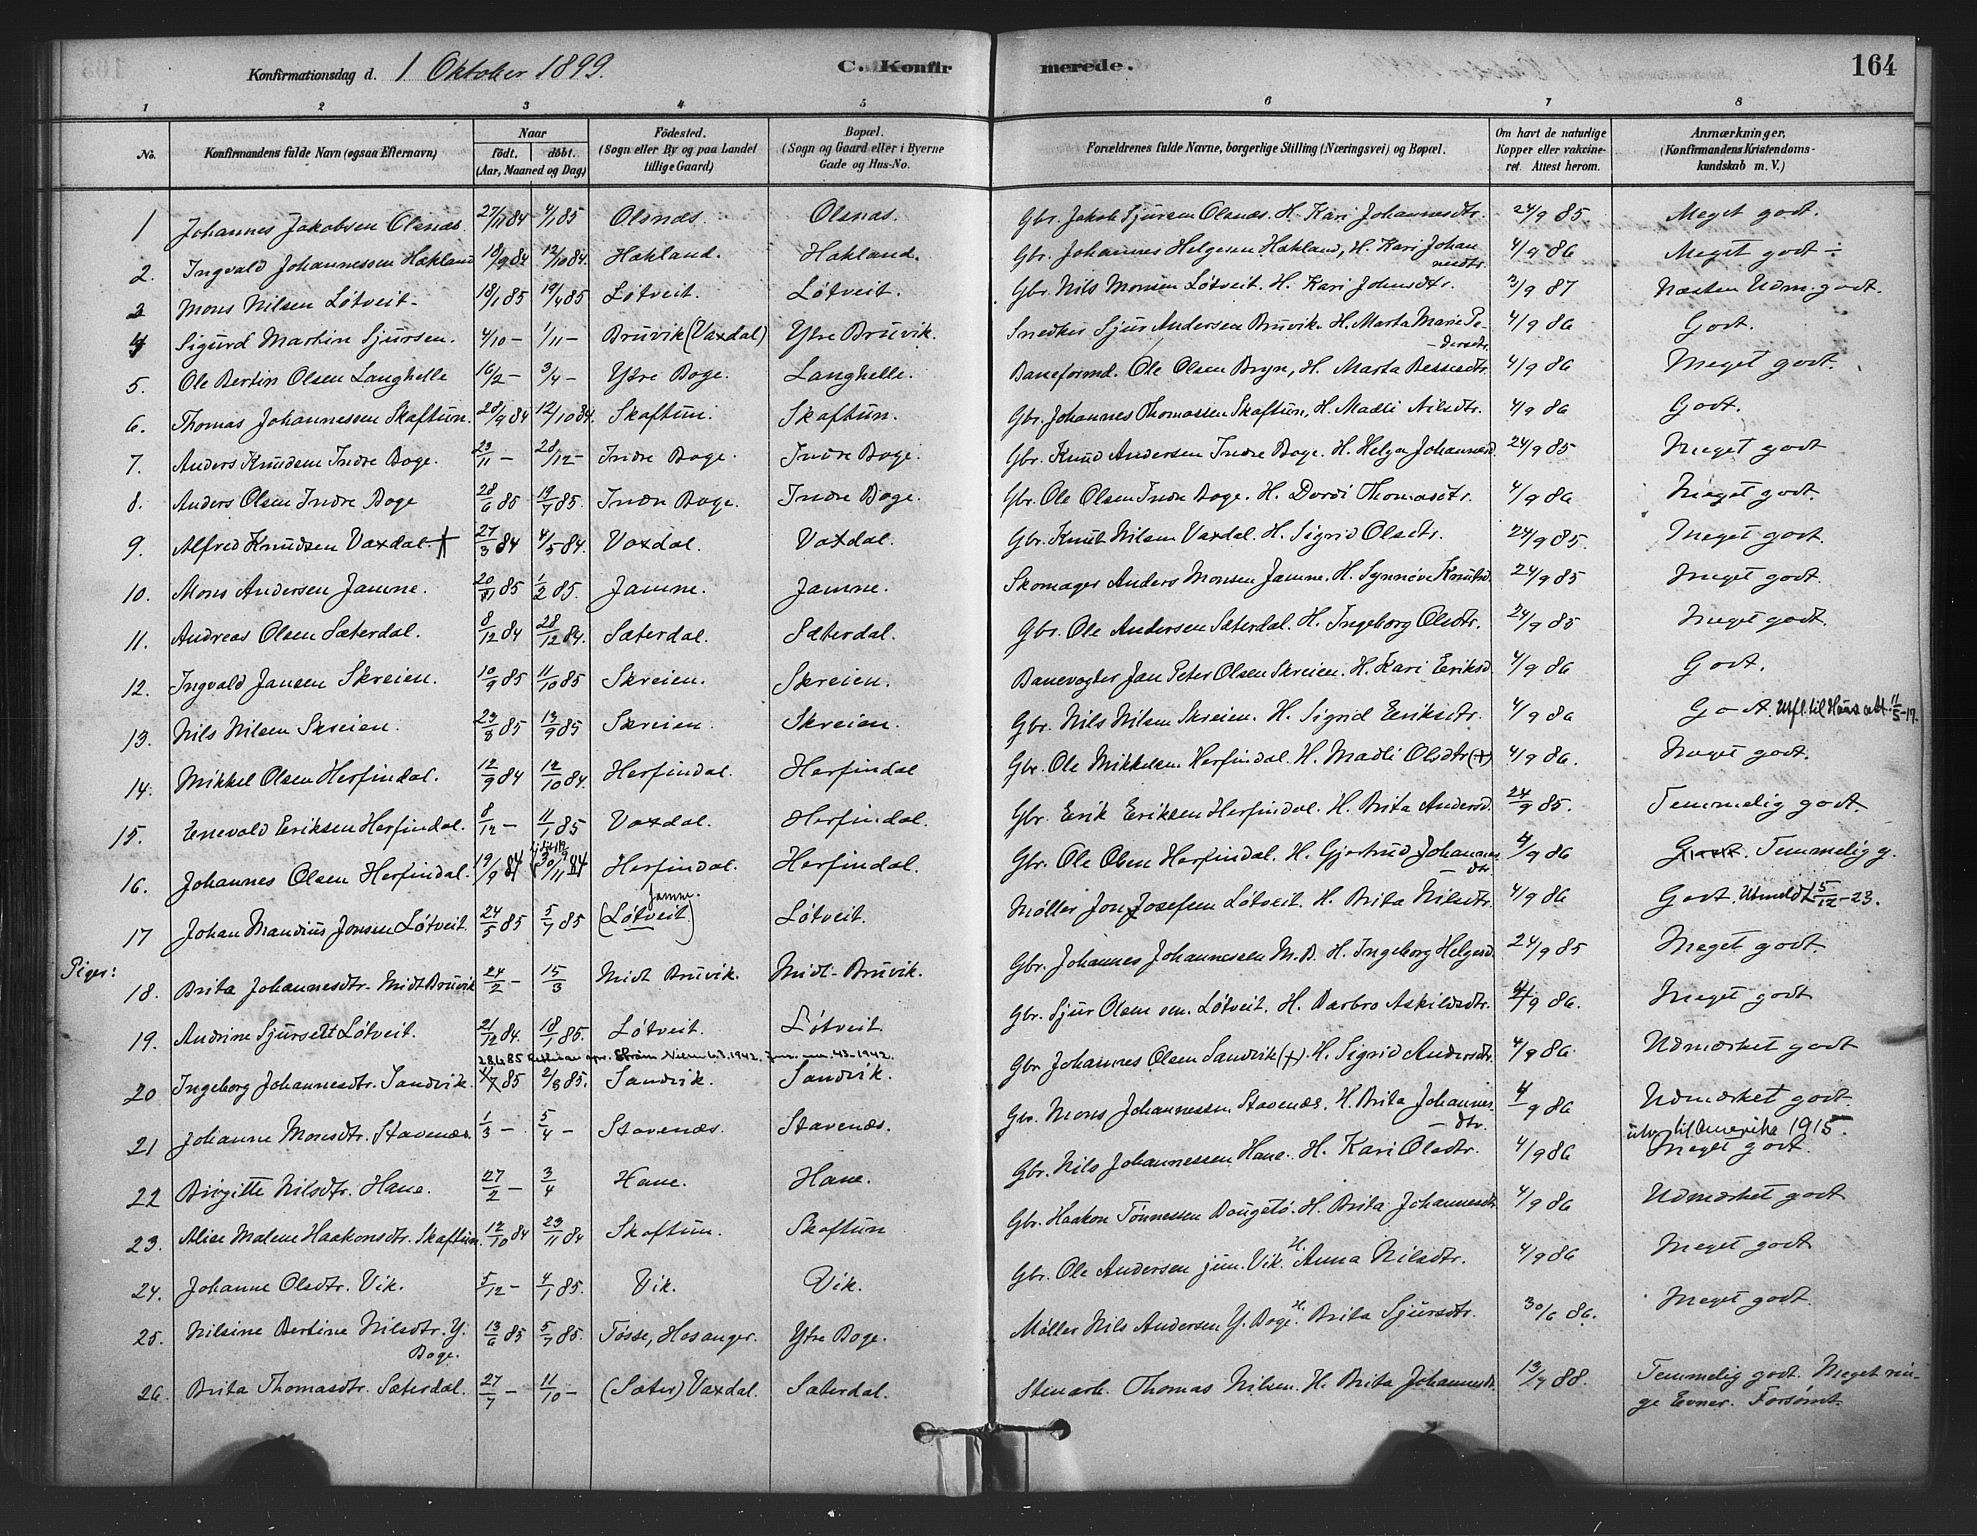 Konfirmationsdag d. 1 Oktober 1899. C. Konfirmerede. 164
1 2 3 4 5 6 7 8
No. Konfirmandens fulde Navn (ogsaa Efternavn) Naar født. døbt. (Aar, Maaned og Dag) Fødested. (Sogn eller By og paa Landet tillige Gaard) Bopæl. (Sogn og Gaard eller i Byerne Gade og Hus-No. Forældrenes fulde Navne, borgerlige Stilling (Næringsvei) og Bopæl. Om havt de naturlige Kopper eller vakcineret. Attest herom. Anmærkninger. (Konfirmandens Kristendomskundskab m. V.)
1 Johannes Jakobsen Olsnæs. 27/11 84 4/1 85 Olsnæs. Olsnæs. Gbr. Jakob Sjursen Olsnæs. H. Kari Johannesdtr. 24/9 85. Meget godt.
2. Ingvald Johannessen Hakland 18/9 84 12/10 84. Hakland. Hakland. Gbr. Johannes Helgesen Hakland, H. Kari Johannesdtr. 4/9 86 Meget godt ÷
3 Mons Nilsen Løtveit. 18/1 85 19/4 85 Løtveit. Løtveit. Gbr. Nils Monsen Løtveit. H. Kari Johnsdtr. 3/9 87 Næsten Udm. godt.
4 Sigurd Martin Sjursen. 4/10 – 1/11 – Bruvik (Vaxdal) Ytre Bruvik. Snedker Sjur Andersen Bruvik. H. Marta Marie Pedersdtr. 4/9 86 Godt.
5. Ole Bertin Olsen Langhelle 16/2 – 3/4 – Ytre Boge. Langhelle. Baneformd. Ole Olsen Bryn, H. Marta Bessesdtr. 4/9 86 Meget godt.
6. Thomas Johannessen Skaftun. 28/9 84 12/10 84. Skaftun. Skaftun. Gbr. Johannes Thomassen Skaftun, H. Madli Nilsdtr. 4/9 86 Godt.
7. Anders Knudsen Indre Boge. 23/11 – 28/12 – Indre Boge. Indre Boge. Gbr. Knud Andersen Indre Boge. H. Helga Johannesd. 24/9 85 Meget godt
8. Anders Olsen Indre Boge 28/6 85 19/7 85. Indre Boge. Indre Boge. Gbr. Ole Olsen Indre Boge. H. Dordi Thomasdtr. 4/9 86 Meget godt.
9. Alfred Knudsen Vaxdal. † 27/3 84 4/5 84. Vaxdal. Vaxdal. Gbr. Knut Nilsen Vaxdal. H. Sigrid Olsdtr. 24/9 85. Meget godt.
10. Mons Andersen Jamne. 20/1 85 1/2 85. Jamne. Jamne. Skomager Anders Monsen Jamne. H. Synnøve Knutsd. 24/9 85 Meget godt.
11. Andreas Olsen Sæterdal. 8/12 84 28/12 84. Sæterdal. Sæterdal. Gbr. Ole Andersen Sæterdal. H. Ingeborg Olsdtr. 24/9 85 Meget godt.
12. Ingvald Jansen Skreien. 10/9 85 11/10 85 Skreien. Skreien. Banevogter Jan Peter Olsen Skreien. H. Kari Eriksd. 4/9 86 Godt.
13. Nils Nilsen Skreien. 23/8 85 13/9 85 Skreien Skreien. Gbr. Nils Nilsen Skreien. H. Sigrid Eriksdtr. 4/9 86 Godt. Utfl. til Haus att. 11/5-17.
14. Mikkel Olsen Herfindal. 12/9 84 12/10 84. Herfindal. Herfindal Gbr. Ole Mikkelsen Herfindal. H. Madli Olsdtr (+) 4/9 86. Meget godt.
15. Enevald Eriksen Herfindal. 8/12 – 11/1 85 Vaxdal. Herfindal. Gbr. Erik Eriksen Herfindal. H. Brita Andersd. 24/9 85. Temmelig godt.
16. Johannes Olsen Herfindal. 19/9 84 30/11 84 Herfindal. Herfindal. Gbr. Ole Olsen Herfindal. H. Gjertrud Johannesdtr 4/9 86 Godt. Temmelig g.
17 Johan Mandius Jonsen Løtveit. 24/5 85 5/7 85 Jamne. (Løtveit) Løtveit. Møller Jon Josefsen Løtveit. H. Brita Nilsdtr. 4/9 86 Godt. Utmeldt 5/12-23.
Piger:
18. Brita Johannesdtr. Midt Bruvik 24/2 – 15/3 Midt Bruvik. Midt-Bruvik. Gbr. Johannes Johannessen M. B. H. Ingeborg Helgesd. 24/9 85 Meget godt
19. Andrine Sjursdtr Løtveit. 21/12 84. 18/1 85. Løtveit. Løtveit. Gbr. Sjur Olsen sen. Løtveit. H. Barbro Askildsdtr. 4/9 86. Meget godt
28.6.85 1942. 43-1942.
20 Ingeborg Johannesdtr. Sandvik. 4/7 85 2/8 85. Sandvik. Sandvik. Gbr. Johannes Olsen Sandvik (+). H. Sigrid Andersdtr. 4/9 86. Udmærket godt
21 Johanne Monsdtr. Stavenæs. 1/3 – 5/4 – Stavenæs. Stavenæs. Gbr. Mons Johannessen Stavenæs. H. Brita Johannesdtr. 4/9 86 Udmærket godt. utv. til Amerika 1915.
22 Birgitte Nilsdtr. Hane. 27/2 – 3/4 Hane. Hane. Gbr. Nils Johannessen Hane. H. Kari Olsdtr. 4/9 86 Meget godt.
23. Alise Malene Haakonsdtr. Skaftun. 12/10 84 23/11 84 Skaftun. Skaftun Gbr. Haakon Tønnessen Daugstø. H. Brita Johannesdtr 4/9 86 Udmærket godt
24. Johanne Olsdtr. Vik. 5/12 – 4/1 85. Vik. Vik. Gbr. Ole Andersen jun. Vik. H. Anna Nilsdtr. 4/9 86 Meget godt
25. Nilsine Bertine Nilsdtr. Y. Boge. 13/6 85 5/7 85. Tøsse, Hosanger. Ytre Boge. Møller Nils Andersen Y. Boge. H. Brita Sjursdtr. 30/6 86. Meget godt.
26. Brita Thomasdtr. Sæterdal. 27/7 – 11/10 – (Sæter) Vaxdal. Sæterdal. Stenarb. Thomas Nilsen. H. Brita Johannesdtr. 13/7 88. Temmelig godt. Meget ringe Evner. Forsømt.